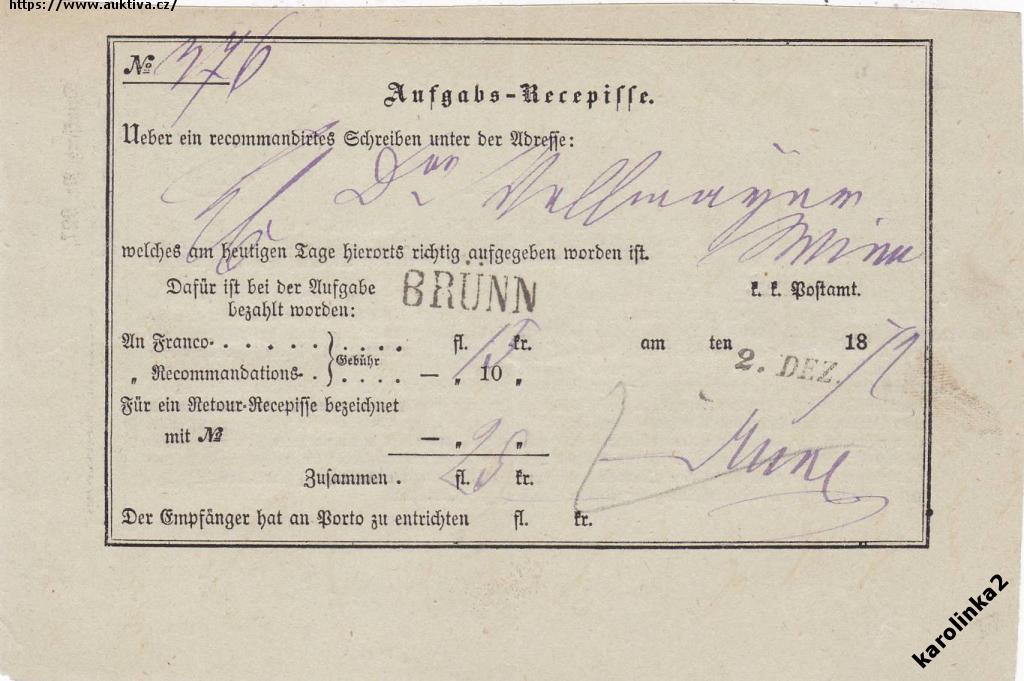 https://www.auktiva.cz/
№ 376
Aufgabs-Recepisse.
Ueber ein recommandirtes Schreiben unter der Adresse:
Dr
Wien
welches am heutigen Tage hierorts richtig aufgegeben worden ist.
Dafür ist bei der Aufgabe BRÜNN k. k. Postamt.
bezahlt worden:
An Franco . . . . . } . . . . fl. 15 kr. am ten 18
Gebühr
„ Recommandations . . } . . . . — „ 10 „ 2. DEZ. 72
Für ein Retour-Recepisse bezeichnet
mit № — „ „
Zusammen . fl. 25 kr.
Der Empfänger hat an Porto zu entrichten fl. kr.
karolinka2